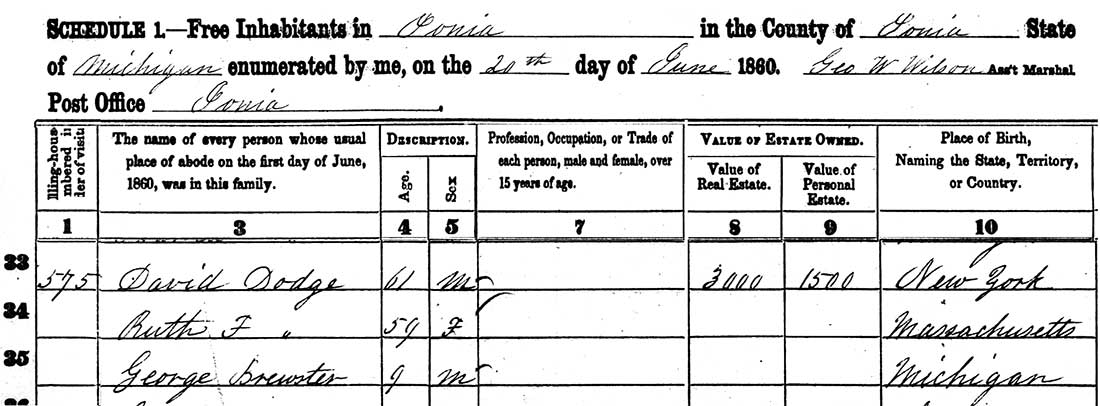 SCHEDULE 1.—Free Inhabitants in Ionia in the County of Ionia State
of Michigan enumerated by me, on the 20th day of June 1860. Geo W Wilson Ass't Marshal
Post Office Ionia.
The name of every person whose usual place of abode on the first day of June, 1860, was in this family.
DESCRIPTION.
Age.
Sex
Profession, Occupation, or Trade of each person, male and female, over 15 years of age.
VALUE OF ESTATE OWNED.
Value of Real Estate.
Value of Personal Estate.
Place of Birth, Naming the State, Territory, or Country.
1 3 4 5 7 8 9 10
33 575 David Dodge 61 m 3000 1500 New York
34 Ruth F " 59 F Massachusetts
35 George Brewster 9 m Michigan